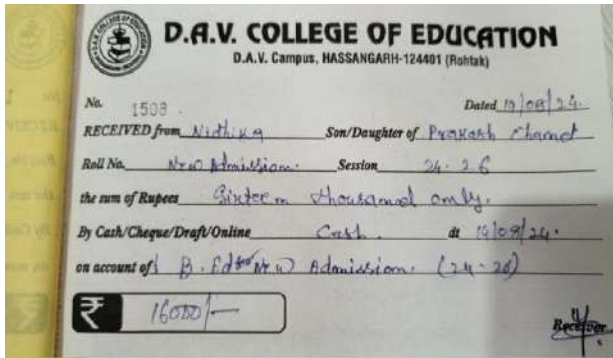 D.A.V. COLLEGE OF EDUCATION
D.A.V. Campus, HASSANGARH-124401 (Rohtak)
No. 1508 Dated 19/08/24
RECEIVED from Nidhika Son/Daughter of Prakash Chand
Roll No. New Admission. Session 24-26
the sum of Rupees Sixteen thousand only.
By Cash/Cheque/Draft/Online Cash. dt 19/08/24.
on account of B.Ed New Admission. (24-26)
₹ 16000/-
Receiver